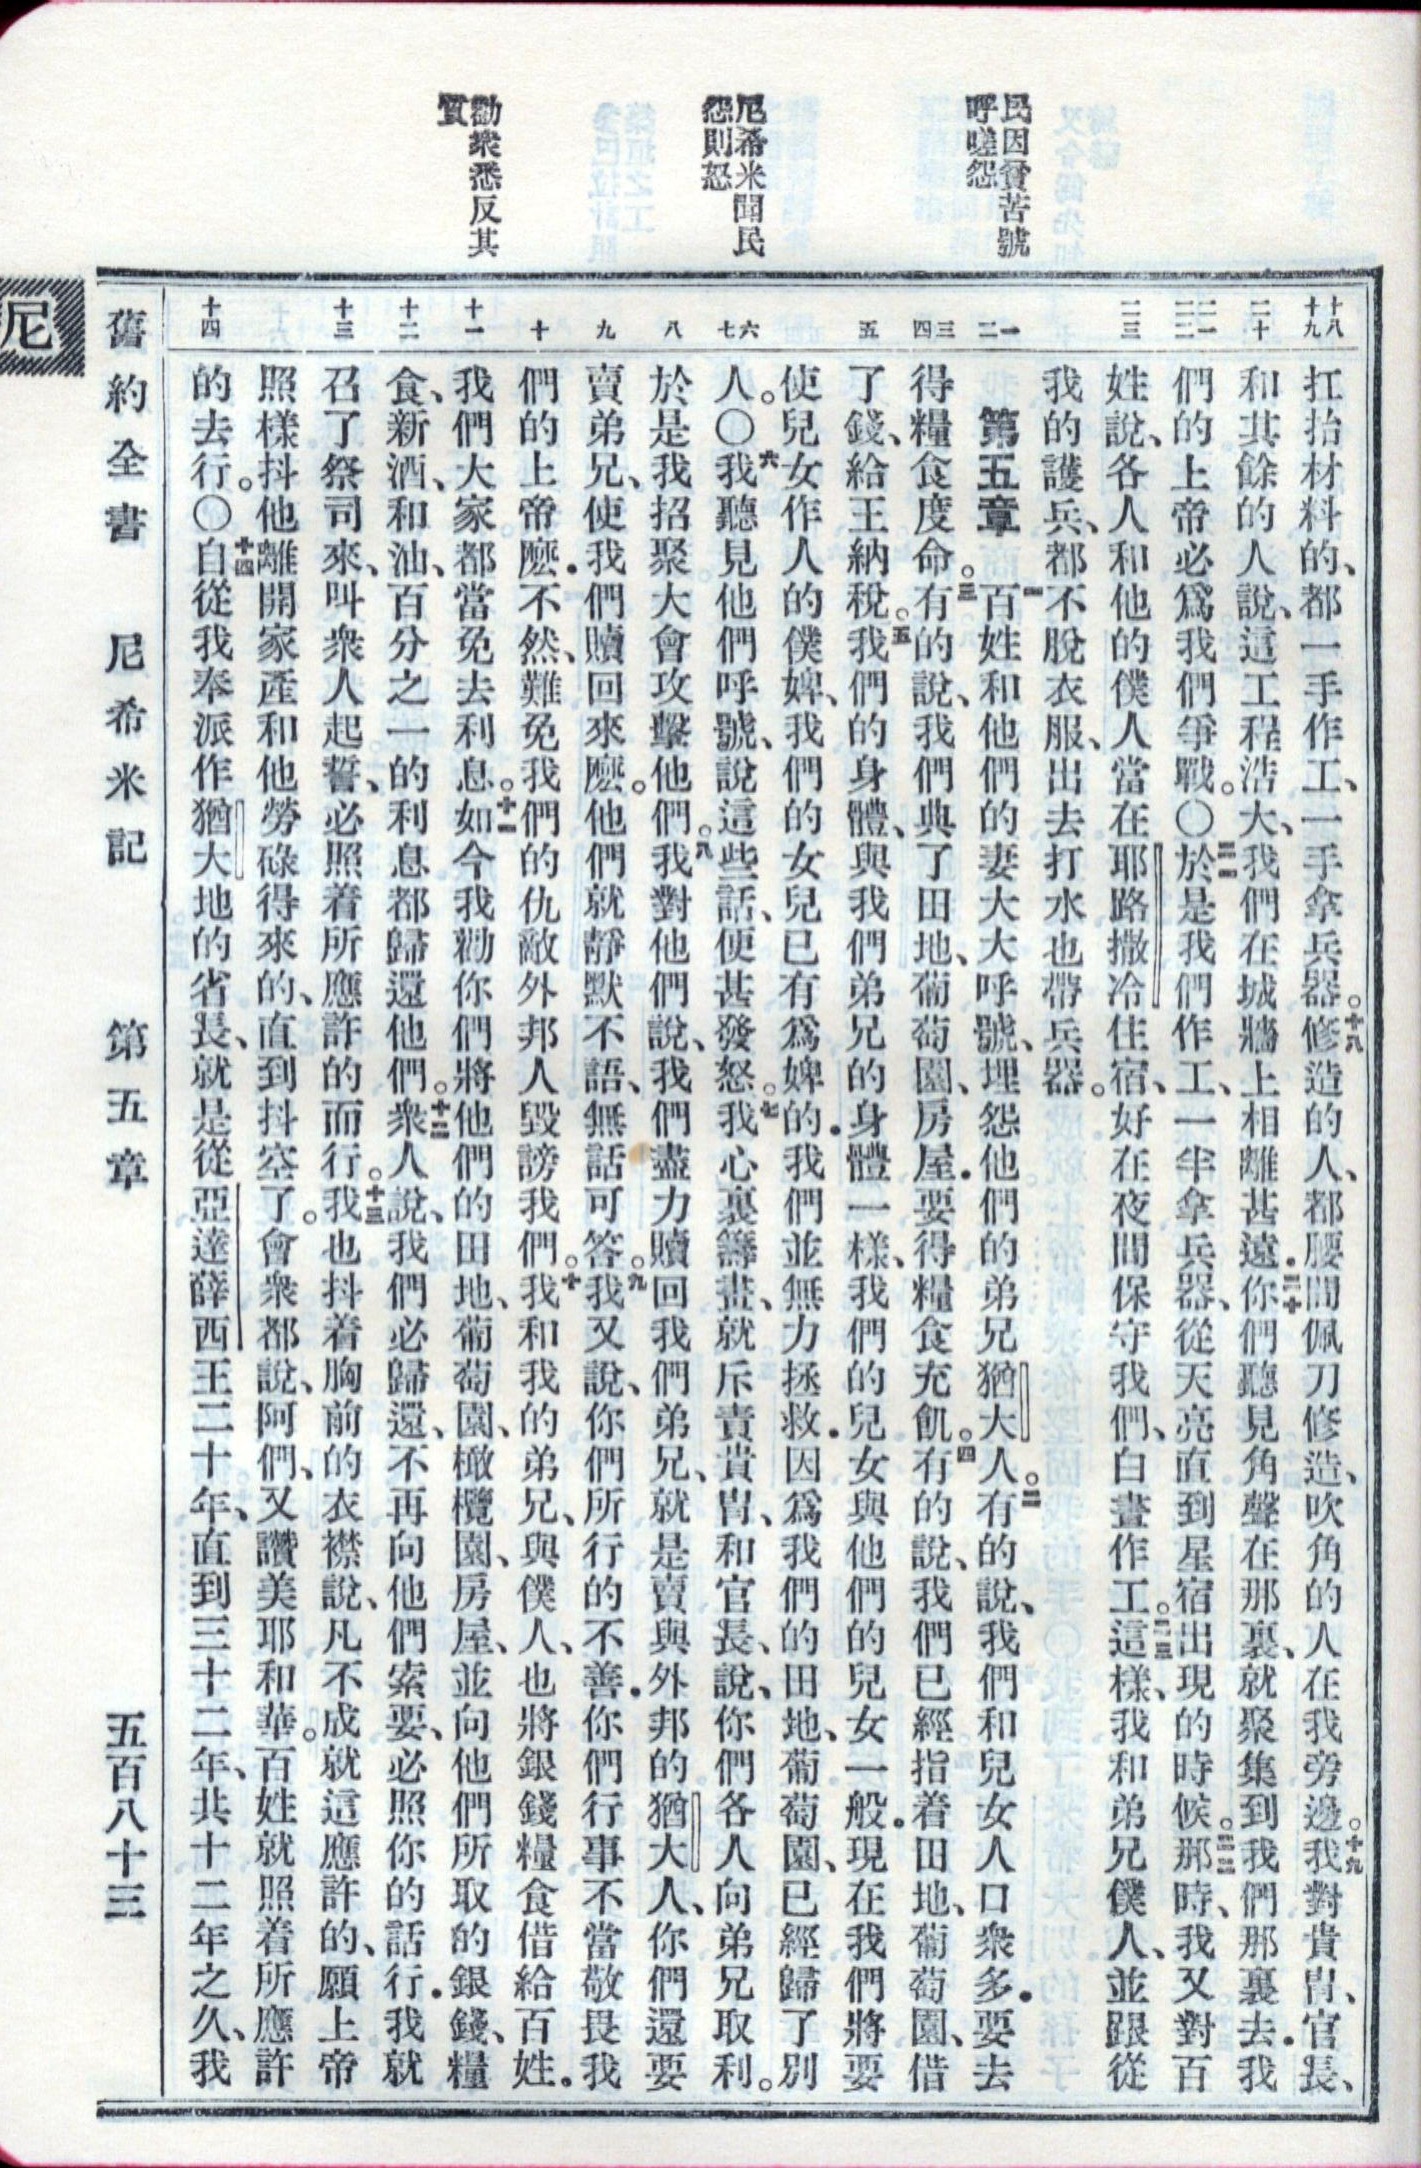 民因貧苦號
呼嗟怨
尼希米聞民
怨則怒
勸衆悉反其
質
十八
十九
二十
二一
二二
二三
一
二
三
四
五
六
七
八
九
十
十一
十二
十三
十四
扛抬材料的、都一手作工、一手拿兵器。十八修造的人、都腰間佩刀修造、吹角的人在我旁邊。十九我對貴冑、官長、
和其餘的人說、這工程浩大、我們在城牆上相離甚遠．二十你們聽見角聲在那裏、就聚集到我們那裏去．我
們的上帝必爲我們爭戰。〇二一於是我們作工、一半拿兵器、從天亮直到星宿出現的時候。二二那時、我又對百
姓說、各人和他的僕人當在耶路撒冷住宿、好在夜間保守我們、白晝作工。二三這樣、我和弟兄僕人、並跟從
我的護兵、都不脫衣服、出去打水也帶兵器。
第五章 一百姓和他們的妻大大呼號、埋怨他們的弟兄猶大人。二有的說、我們和兒女人口衆多．要去
得糧食度命。三有的說、我們典了田地、葡萄園、房屋．要得糧食充飢。四有的說、我們已經指着田地、葡萄園、借
了錢、給王納稅。五我們的身體、與我們弟兄的身體一樣、我們的兒女與他們的兒女一般．現在我們將要
使兒女作人的僕婢、我們的女兒已有爲婢的．我們並無力拯救．因爲我們的田地、葡萄園、已經歸了別
人。〇六我聽見他們呼號、說這些話、便甚發怒。七我心裏籌畫、就斥責貴冑、和官長、說、你們各人向弟兄取利。
於是我招聚大會攻擊他們。八我對他們說、我們盡力贖回我們弟兄、就是賣與外邦的猶大人、你們還要
賣弟兄、使我們贖回來麽。他們就靜默不語、無話可答。九我又說、你們所行的不善．你們行事不當敬畏我
們的上帝麽．不然、難免我們的仇敵外邦人毀謗我們。十我和我的弟兄、與僕人、也將銀錢糧食借給百姓．
我們大家都當免去利息。十一如今我勸你們將他們的田地、葡萄園、橄欖園、房屋、並向他們所取的銀錢、糧
食、新酒、和油、百分之一的利息都歸還他們。十二衆人說、我們必歸還、不再向他們索要、必照你的話行．我就
召了祭司來、叫衆人起誓、必照着所應許的而行。十三我也抖着胸前的衣襟說、凡不成就這應許的、願上帝
照樣抖他離開家產和他勞碌得來的、直到抖空了。會衆都說、阿們、又讚美耶和華。百姓就照着所應許
的去行。〇十四自從我奉派作猶大地的省長、就是從亞達薛西王二十年、直到三十二年、共十二年之久、我
舊約全書 尼希米記 第五章 五百八十三
尼